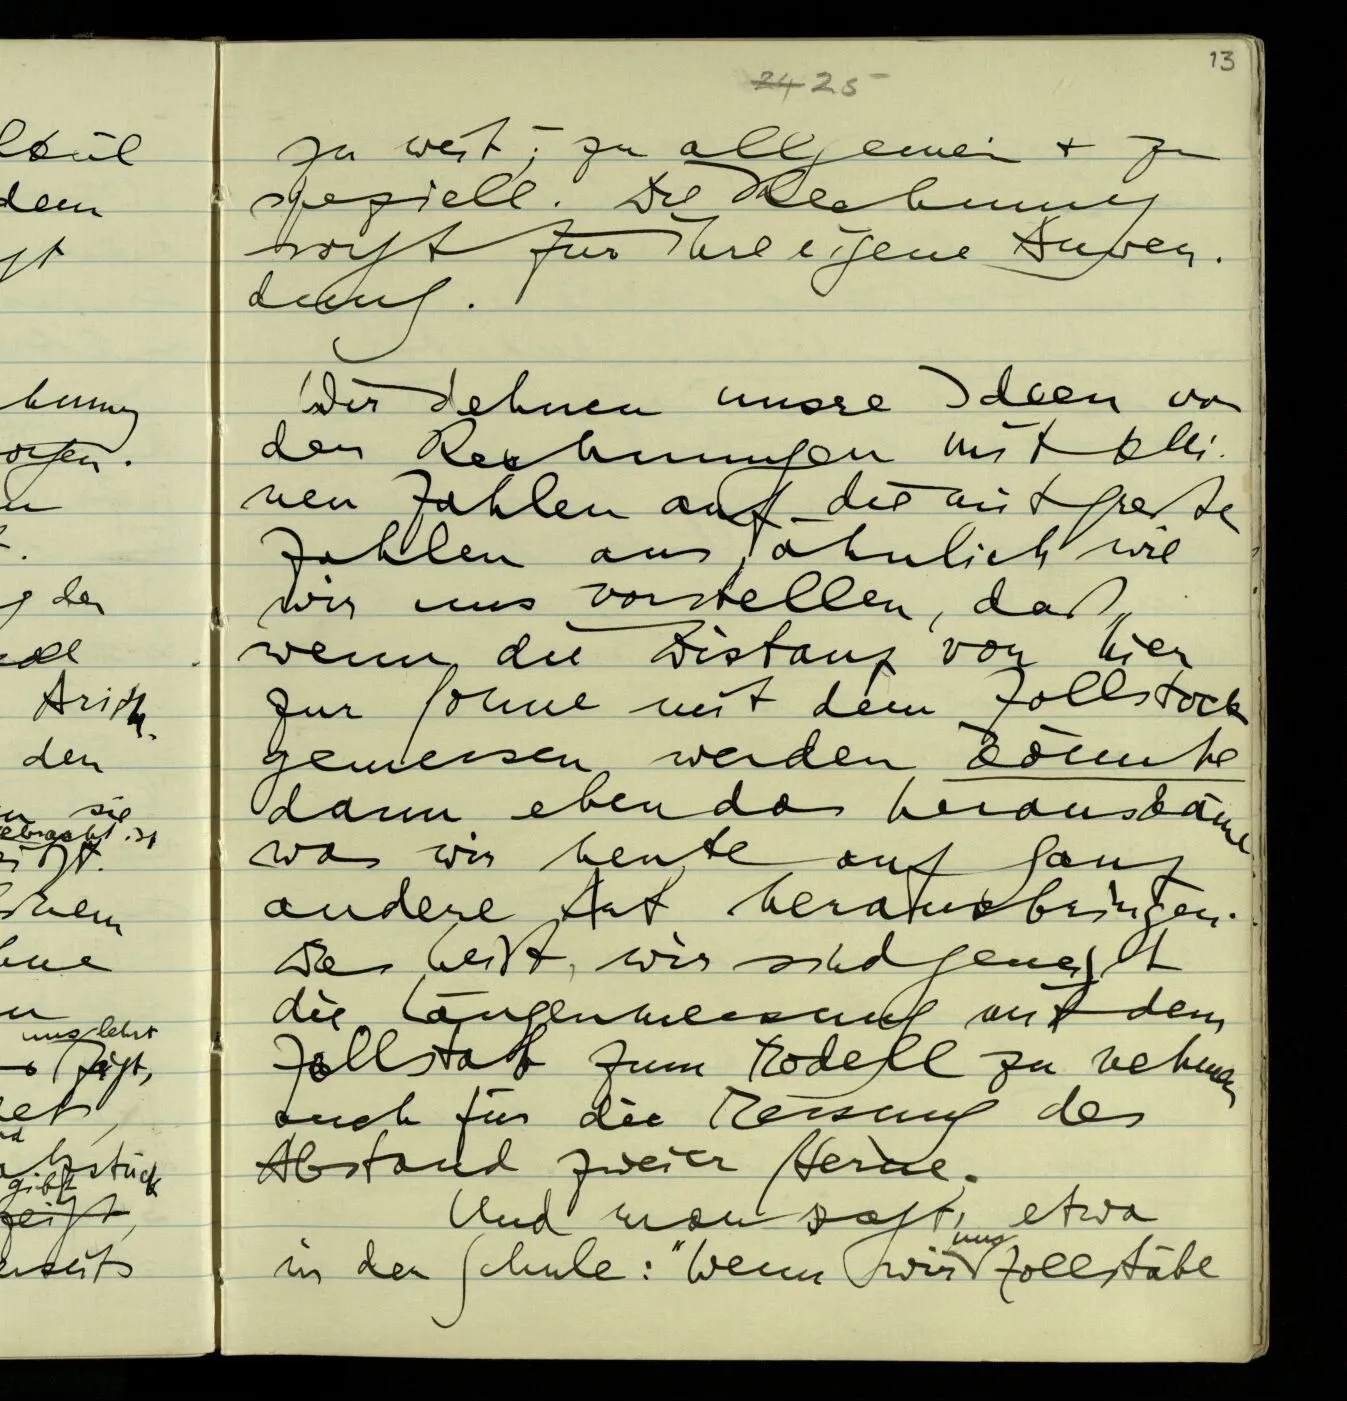 13
24 25
zu weit; zu allgemein + zu
speziell. Die Rechnung
sorgt für ihre eigene Anwen-
dung.
Wir dehnen unsre Ideen von
den Rechnungen mit klei-
nen Zahlen auf die mit große
Zahlen aus, ähnlich wie
wir uns vorstellen, daß,
wenn die Distanz von hier
zur Sonne mit dem Zollstock
gemessen werden könnte
dann eben das herauskäme
was wir heute auf ganz
andere Art herausbringen.
Das heißt, wir sind geneigt
die Längenmessung mit dem
Zollstab zum Modell zu nehmen
auch für die Messung des
Abstand zweier Sterne.
Und man sagt, etwa
in der Schule: "Wenn wir uns Zollstäbe
dem
Arith.
den
sie
gebracht ist
uns lehrt
gibt
zeigt,